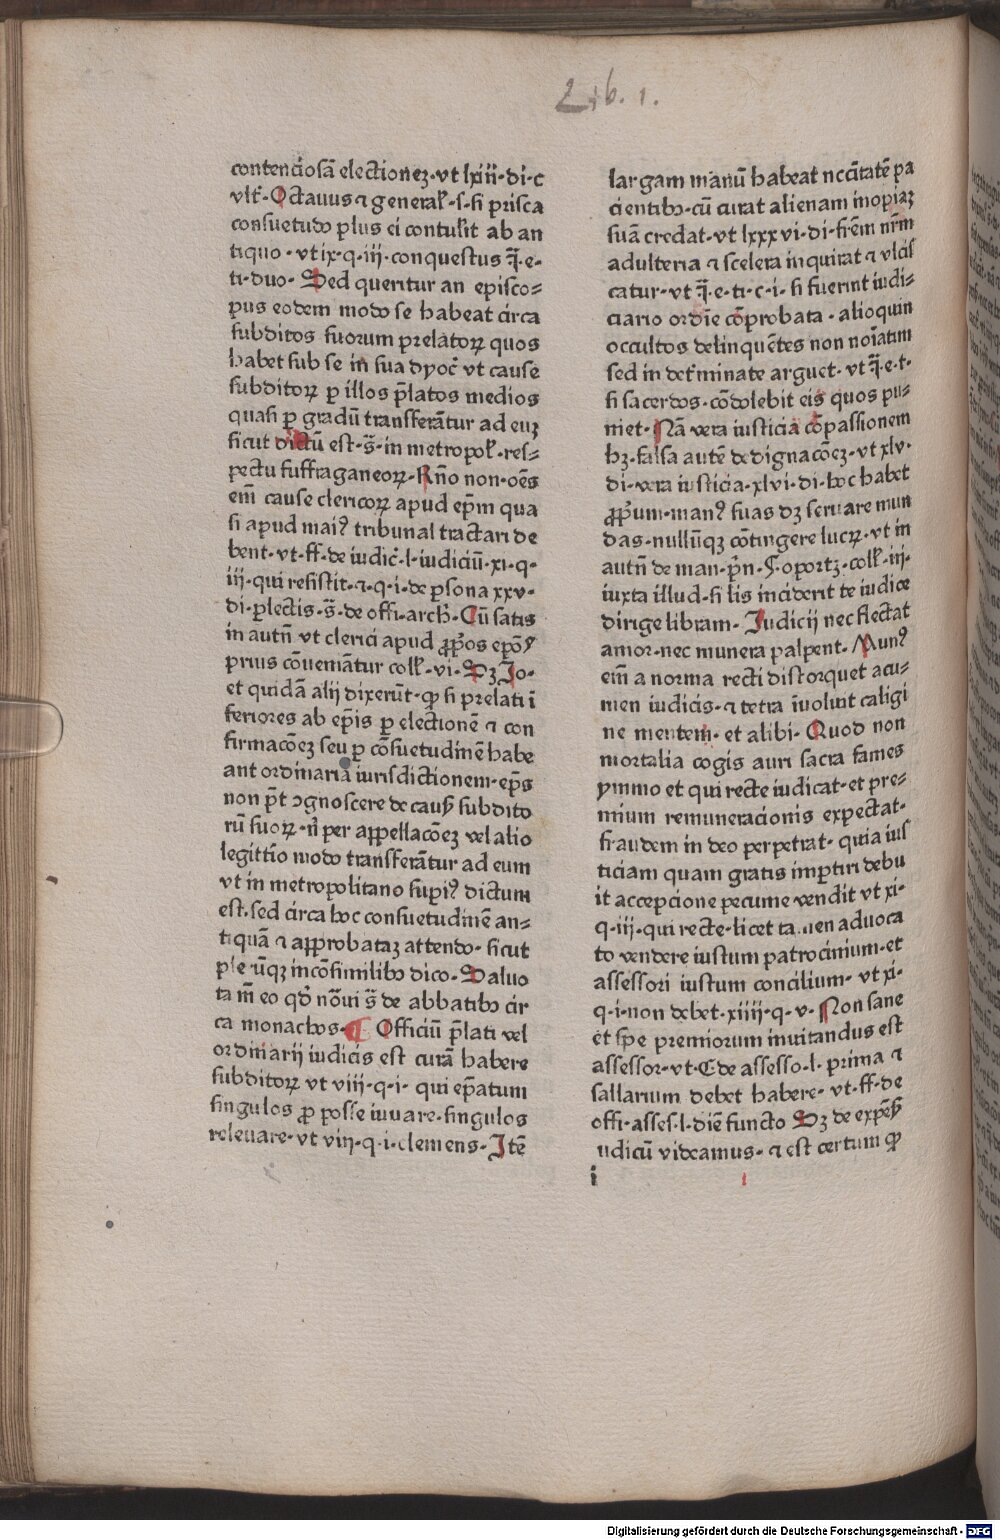 Lib. 1.
contenciosā electionez·vt lxiii·di·c
vlt̄·Octauus ⁊ general̕·s·si prisca
consuetudo plus ei contulit ab an
tiquo·vt ix·q·iii·conquestus q̄·e·
ti·duo·Sed queritur an episco=
pus eodem modo se habeat circa
subditos suorum prelatoꝝ quos
habet sub se in sua dyoc̄ vt cause
subditoꝝ ꝑ illos p̄latos medios
quasi ꝑ gradū transferātur ad euꝫ
sicut dictū est·s̄·in metropol̕·res=
pectu suffraganeoꝝ·Rn̄o non·oēs
em̄ cause clericoꝝ apud ep̄m qua
si apud maiꝰ tribunal tractari de
bent·vt·ff·de iudic̄·l·iudiciū·xi·q·
iii·qui resistit·⁊·q·i·de ꝑsona xxv·
di·ꝑlectis·s̄·de offi·arch̄·Cū satis
in autn̄ vt clerici apud ꝓpͦos epōꝭ
prius cōueniātur coll̕·vi·Sꝫ Jo·
et quidā alij dixerūt·ꝙ si prelati ī
feriores ab ep̄is ꝑ electionē ⁊ con
firmacōeꝫ seu ꝑ cōsuetudinē habe
ant ordinariā iurisdictionem·ep̄s
non p̄t ꝯgnoscere de causꝭ subdito
rū suoꝝ·n̄ per appellacōeꝫ vel alio
legittīo modo transferātur ad eum
vt in metropolitano supiꝰ dictum
est·sed circa hoc consuetudinē an=
tiquā ⁊ approbataꝫ attendo·sicut
ple rūqꝫ incōsimilibꝫ dico·Saluo
ta m̄ eo qd̕ nōui s̄ de abbatibꝫ cir
ca monachos·¶ Officiū p̄lati vel
ordinarij iudicis est curā habere
subditoꝝ vt viii·q·i·qui ep̄atum
singulos ꝓ posse iuuare·singulos
releuare·vt viii·q·i·clemens·Jtē
largam manū habeat nccītatē pa
cientibꝫ·cū curat alienam inopiaꝫ
suā credat·vt lxxxvi·di·fr̄em nr̄m
adulteria ⁊ scelera inquirat ⁊ vlcis
catur·vt q̄·e·ti·c·i·si fuerint iudi=
ciario ordīe cōprobata·alioquin
occultos delinquētes non noīatim
sed in det̕minate arguet·vt q̄·e·t·
si sacerdos·cōdolebit eis quos pu=
niet·Nā vera iusticia cōpassionem
hꝫ·falsa autē dedignacōeꝫ·vt xlv·
di·vera iusticia·xlvi·di·hoc habet
ꝓpͥum·manꝰ suas dꝫ seruare mun
das·nullūqꝫ cōtingere lucꝝ·vt in
autn̄ de man·pn̄·§·oportꝫ·coll̕·iii·
iuxta illud·si lis inciderit te iudice
dirige libram·Judicij nec flectat
amor·nec munera palpent·Munꝰ
eīm a norma recti distorquet acu=
men iudicis·⁊ tetra īuoluit caligi
ne mentem·et alibi·Quod non
mortalia cogis auri sacra fames
ymmo et qui recte iudicat·et pre=
mium remuneracionis expectat·
fraudem in deo perpetrat·quia ius
ticiam quam gratis imꝑtiri debu
it accepcione pecunie vendit vt xi·
q·iii·qui recte·licet tamen aduoca
to vendere iustum patrocinium·et
assessori iustum concilium·vt xi·
q·i·non debet·xiiii·q·v·Non sane
et spe premiorum inuitandus est
assessor·vt·C de assesso·l·prima ⁊
sallarium debet habere·vt·ff·de
offi·asses·l·diē functo Sꝫ de expēs̄
iudicū videamus·⁊ est certum ꝙ
i
Digitalisierung gefördert durch die Deutsche Forschungsgemeinschaft - DFG